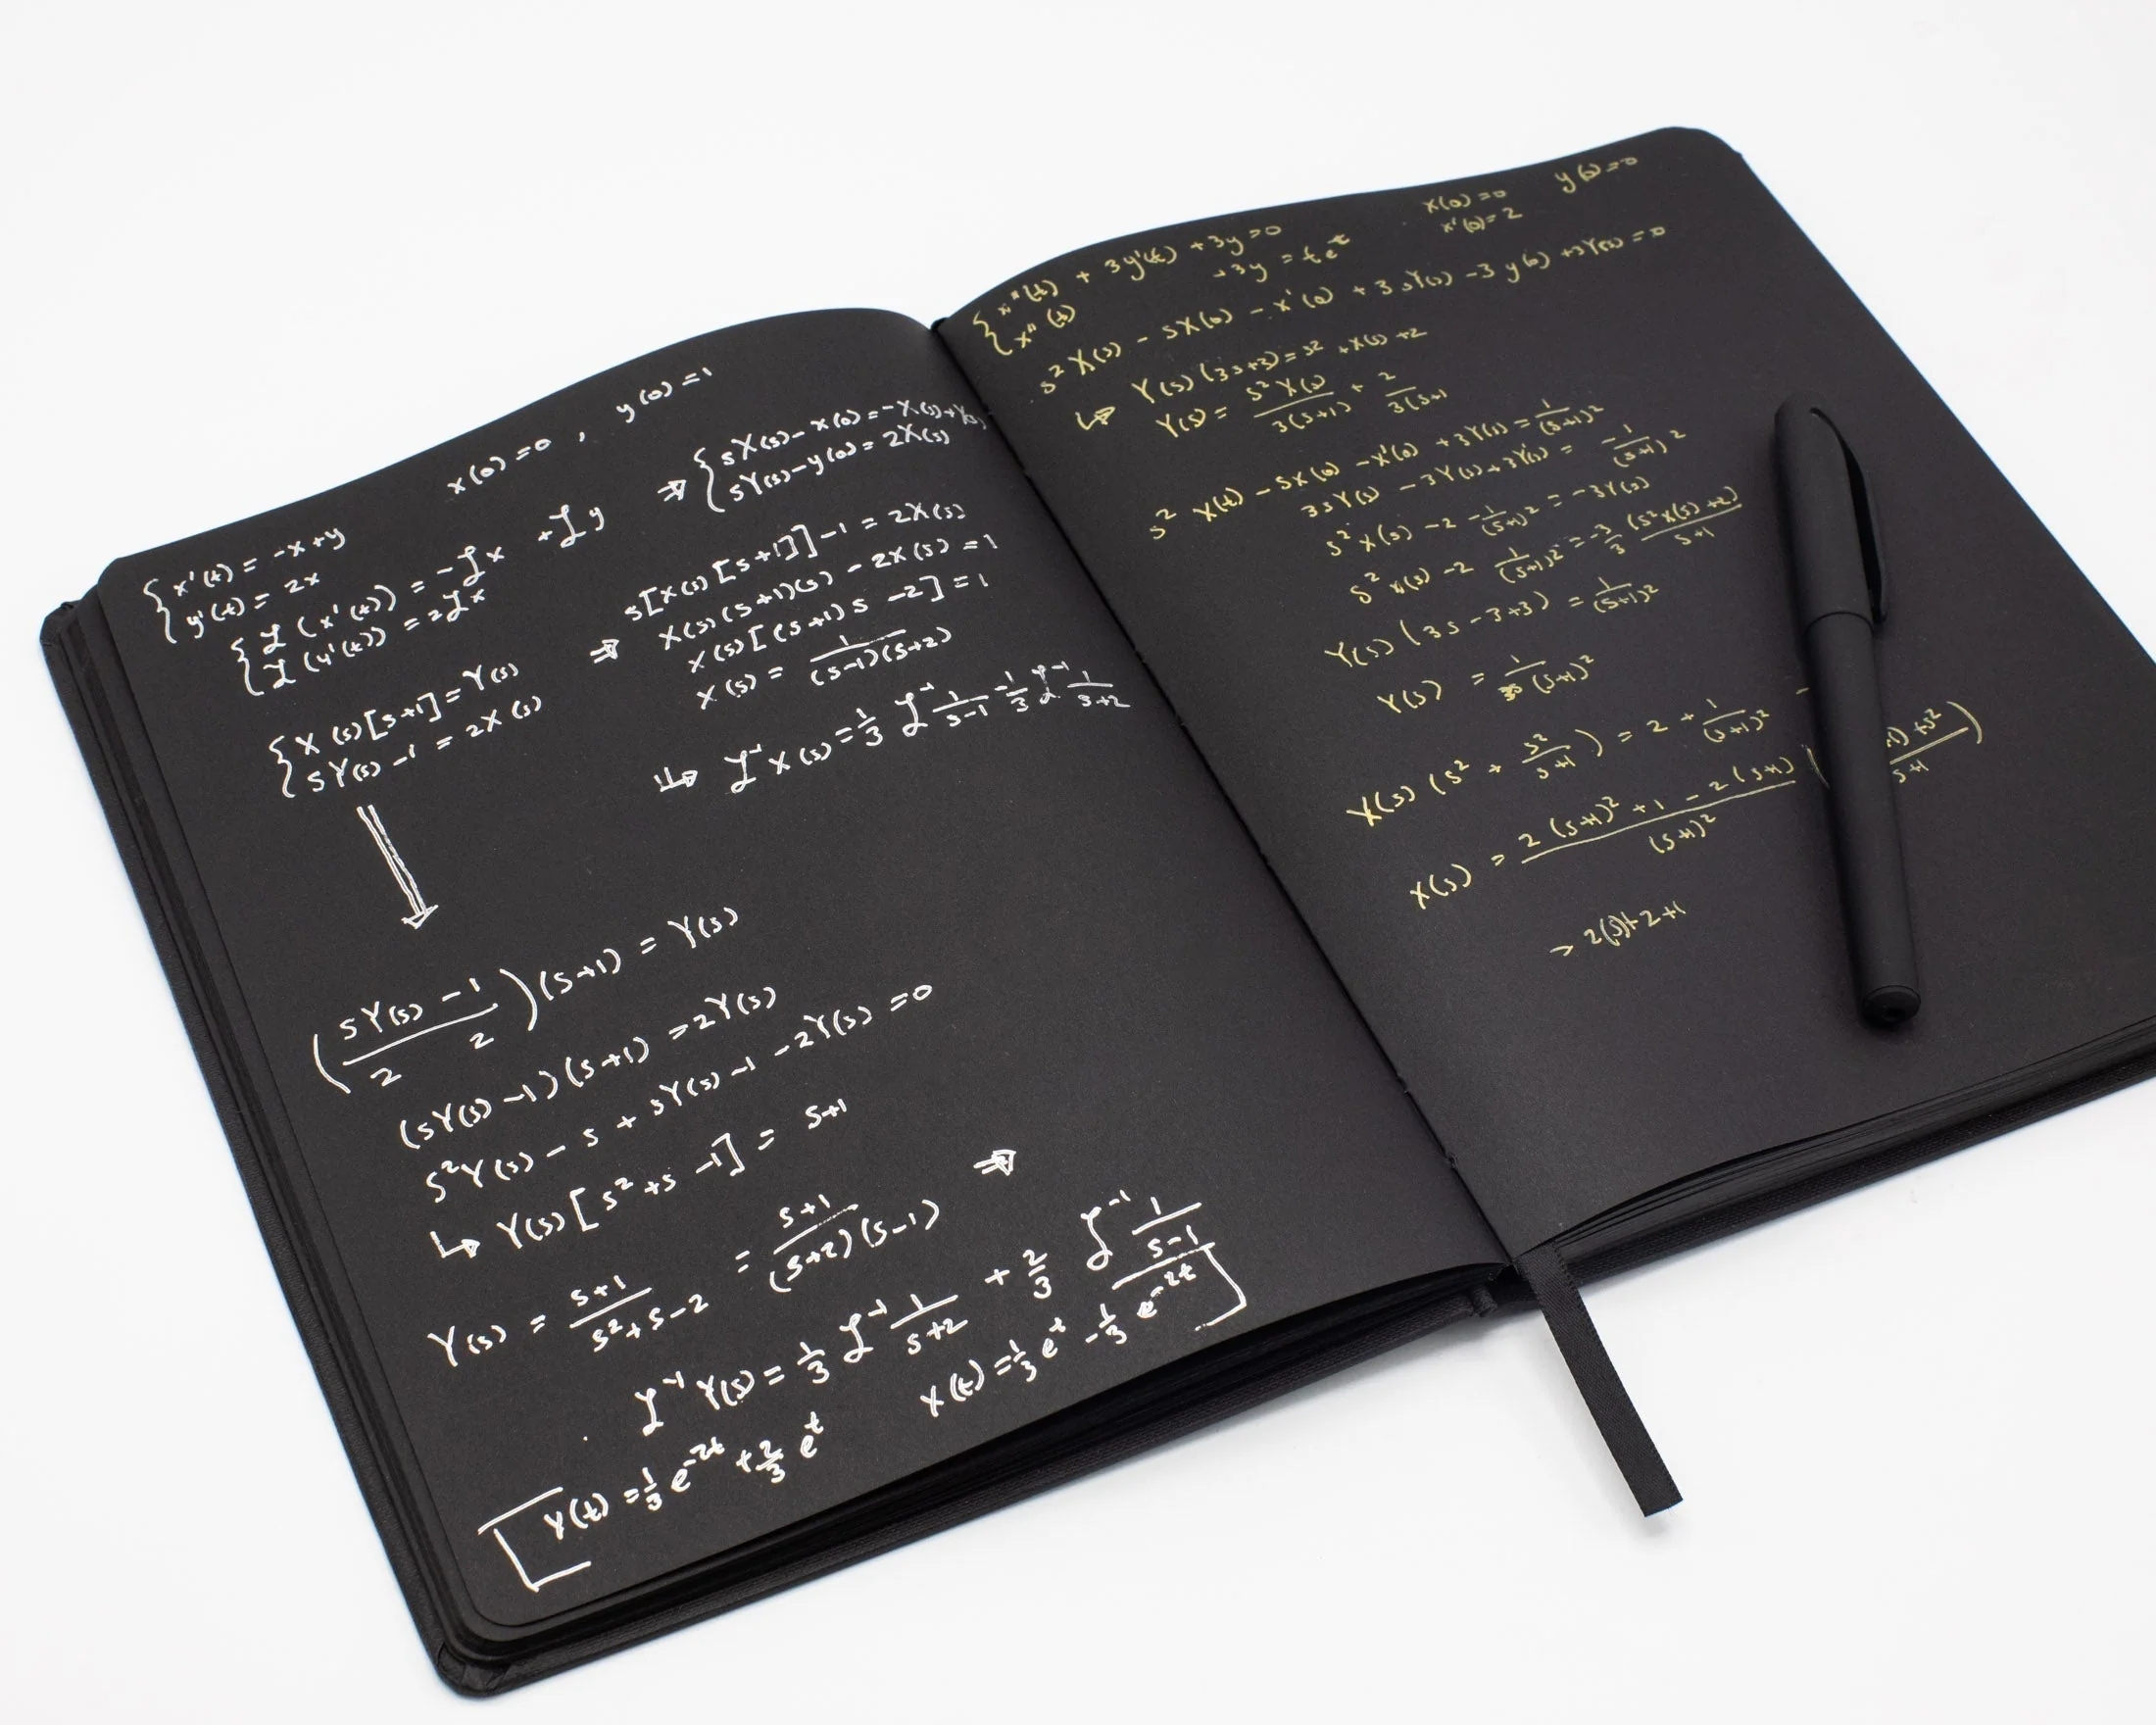 x(0)=0 , y(0)=1
{ x'(t) = -x+y
y'(t) = 2x
{ ℒ(x'(t)) = -ℒx +ℒy
ℒ(y'(t)) = 2ℒx
⇒ { sX(s)-x(0)=-X(s)+Y(s)
sY(s)-y(0)=2X(s)
{ X(s)[s+1]=Y(s)
sY(s)-1=2X(s)
⇒ s[X(s)[s+1]]-1=2X(s)
X(s)(s+1)(s)-2X(s)=1
X(s)[(s+1)s-2]=1
X(s) = 1/((s-1)(s+2))
↳ ℒ⁻¹X(s)=1/3 ℒ⁻¹ 1/(s-1) - 1/3 ℒ⁻¹ 1/(s+2)
((sY(s)-1)/2 2)(s+1) = Y(s)
(sY(s)-1)(s+1)=2Y(s)
s²Y(s)-s+sY(s)-1-2Y(s)=0
↳ Y(s)[s²+s-1] = s+1
Y(s) = (s+1)/(s²+s-2) = (s+1)/((s+2)(s-1)) ⇒
ℒ⁻¹Y(s)=1/3 ℒ⁻¹ 1/(s+2) + 2/3 ℒ⁻¹ 1/(s-1)
y(t)=1/3 e^-2t + 2/3 e^t
x(t)=1/3 e^t - 1/3 e^-2t
x(0)=0 y(0)=0
x'(0)=2
{ x''(t) + 3y'(t) + 3y=0
x''(t) +3y = te^t
s²X(s) - sX(0) - x'(0) + 3sY(s) - 3y(0) + 3Y(s) = 0
↳ Y(s)(3s+3)=s² +X(s) +2
Y(s) = s²X(s)/3(s+1) + 2/3(s+1
s² X(t) - sX(0) - x'(0) +3Y(s) = 1/(s+1)²
3sY(s) - 3Y(s)+3Y(s) = -1/(s+1)²
s²X(s) -2 -1/(s+1)² = -3Y(s)
s²X(s) -2 1/(s+1)² = -3/3 (s²X(s)+2)/(s+1)
Y(s)(3s-3+3) = 1/(s+1)²
Y(s) = 1/3s (s+1)²
X(s)(s² + s²/(s+1)) = 2 + 1/(s+1)² -
X(s) = (2(s+1)²+1-2(s+1))/(s+1)² ( +s²)/(s+1) )
→ 2(s)+2+1